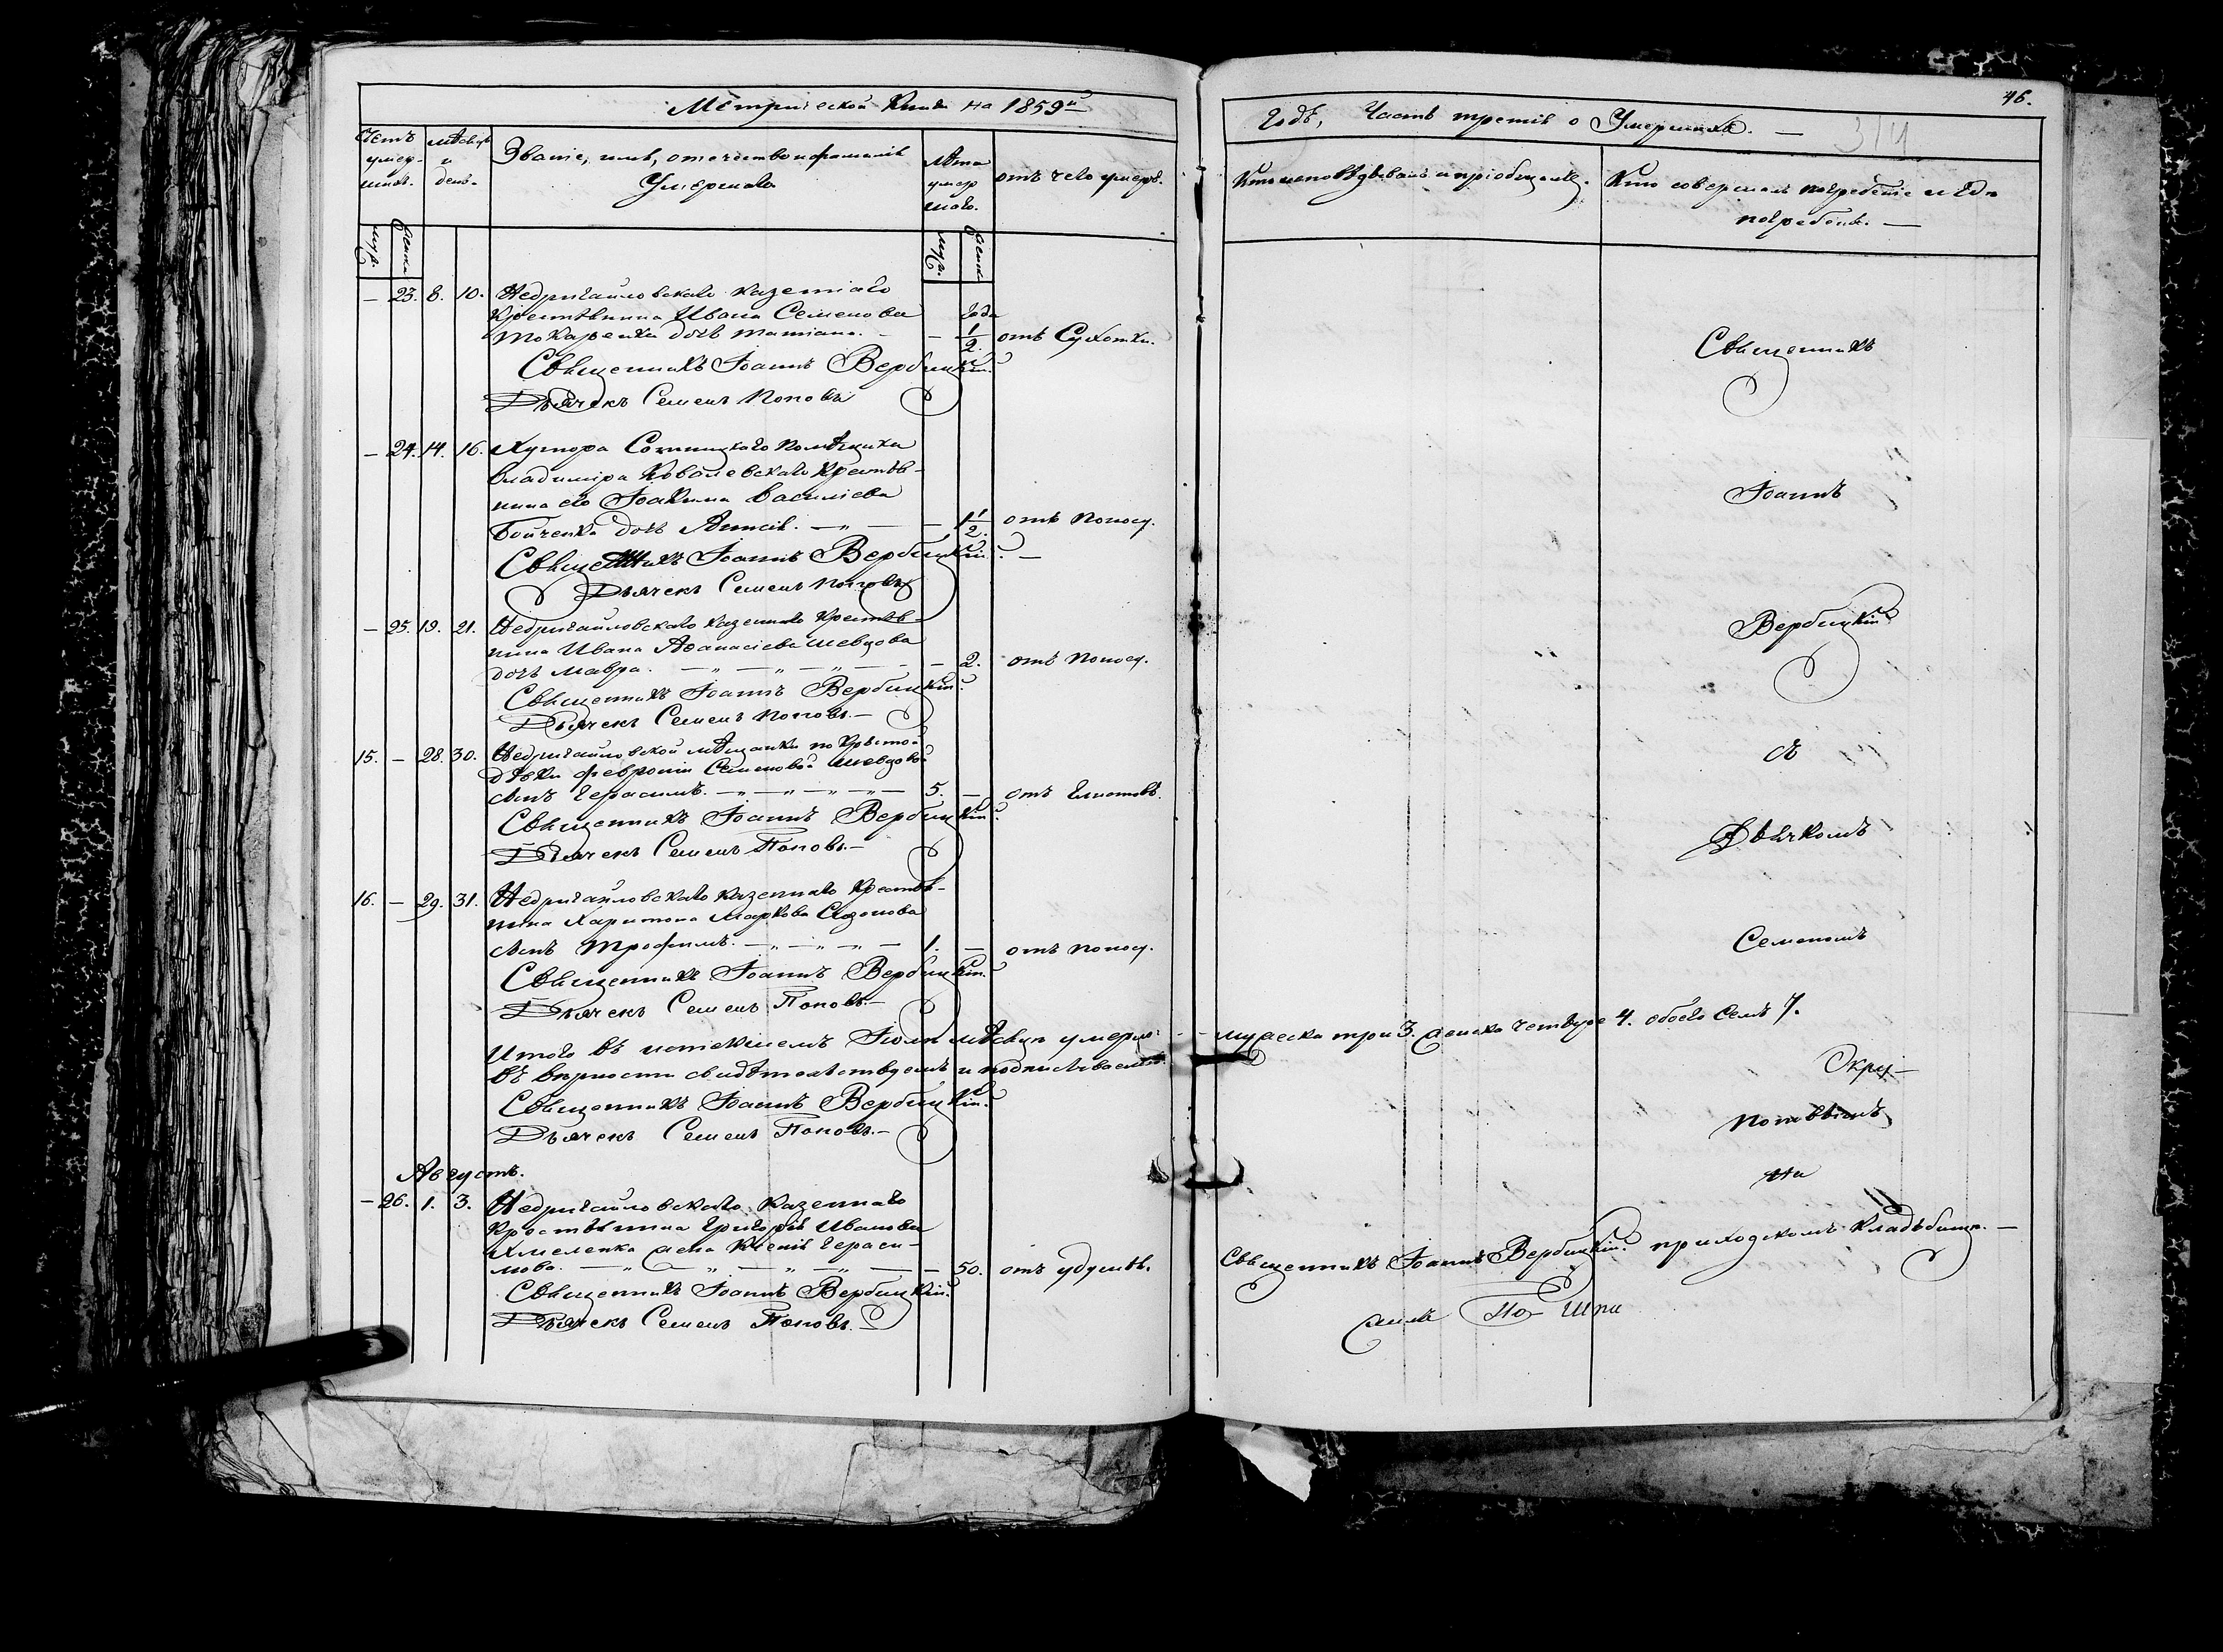 Метрической Книги на 1859й
Счетъ умер-шихъ.
мѣсяцъ и день.
Званіе, имя, отечество и фамилія Умершаго
Лѣта умер шаго.
отъ чего умеръ.
муж.
женс.
муж.
женс.
— 23. 8. 10. Недригайловскаго казеннаго
Крестьянина Ивана Семенова года
Токаренка дочь Татіана. — — 1/2. отъ Сухотки.
Священникъ Іоаннъ Вербицкій.
Дьячекъ Семенъ Поповъ
— 24. 14. 16. Хутора Сотницкаго Помѣщика
Владиміра Ковалевскаго Крестья-
нина его Іоакима Василіева
Бойченка дочь Анисія. — „ — — 1 1/2. отъ поносу.
Священникъ Іоаннъ Вербицкій. —
Дьячекъ Семенъ Поповъ
— 25. 19. 21. Недригайловскаго казеннаго Крестья-
нина Ивана Аѳанасіева Шевцова
дочь Мавра. — „ — „ — „ — — 2. отъ поносу.
Священникъ Іоаннъ Вербицкій.
Дьячекъ Семенъ Поповъ. —
15. — 28. 30. Недригайловской мѣщанки по Крытой
дѣвки Февроніи Семеновой Шевцовой
сынъ Герасимъ. — „ — „ — „ — „ — 5. — отъ Глистовъ.
Священникъ Іоаннъ Вербицкій.
Дьячекъ Семенъ Поповъ. —
16. — 29. 31. Недригайловскаго казеннаго Крестья-
нина Харитона Маркова Созонова
сынъ Трофимъ. — „ — „ — „ — 1. — отъ поносу.
Священникъ Іоаннъ Вербицкій.
Дьячекъ Семенъ Поповъ. —
Итого въ истекшемъ Іюлѣ мѣсяцѣ умерло:
въ вѣрности свидѣтельствуемъ и подписываемся.
Священникъ Іоаннъ Вербицкій.
Дьячекъ Семенъ Поповъ. —
Августъ.
— 26. 1. 3. Недригайловскаго казеннаго
Крестьянина Григорія Иванова
Хмеленка жена Ксенія Гераси-
мова. — „ — „ — „ — „ — — 50. отъ удушья.
Священникъ Іоаннъ Вербицкій.
Дьячекъ Семенъ Поповъ. —
46.
314
Годъ, Часть третія о Умершихъ. —
Кто исповѣдывалъ и пріобщалъ.
Кто совершалъ погребеніе и гдѣ погребены. —
Священникъ
Іоаннъ
Вербицкій
съ
Дьячкомъ
Семеномъ
— мужеска три 3. женска четыре 4. обоего семь 7.
Поповымъ
на
Священникъ Іоаннъ Вербицкій. приходскомъ кладбищѣ. —